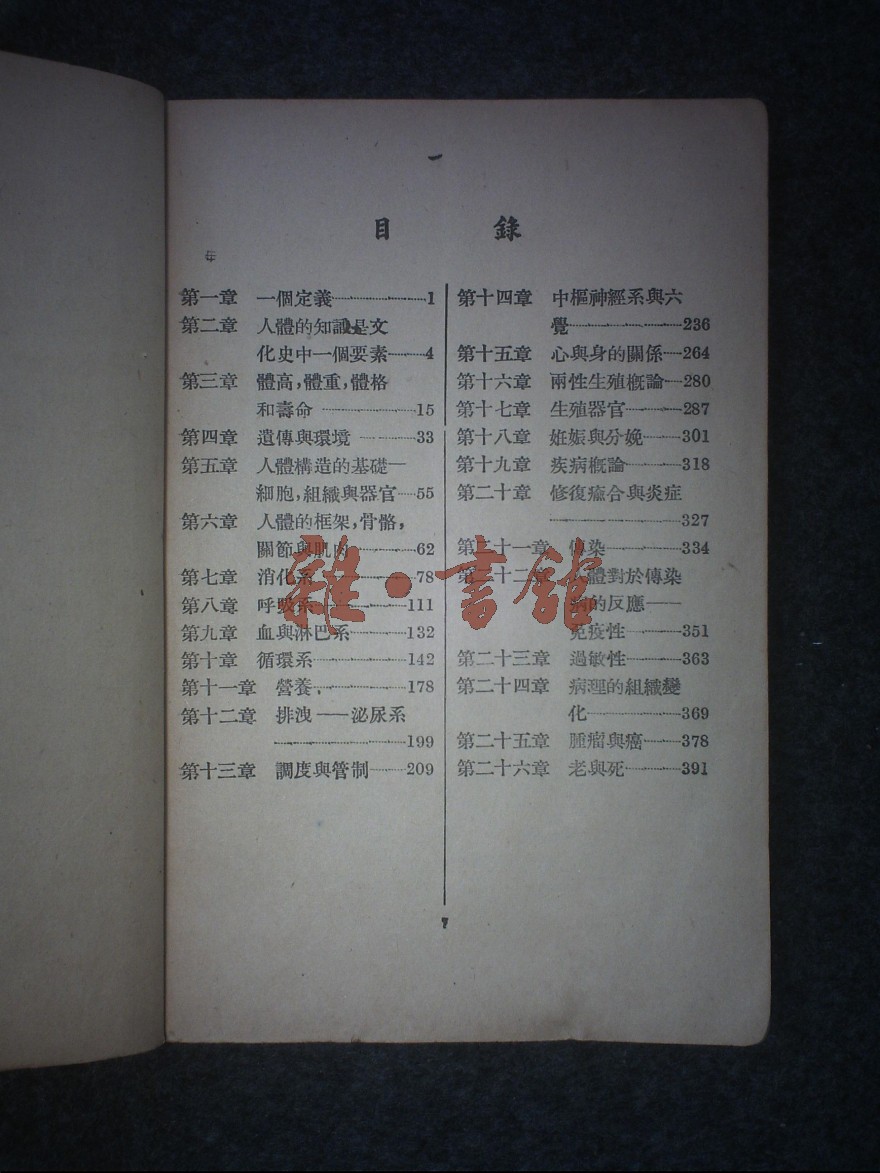 目 錄
第一章 一個定義……1
第二章 人體的知識是文
化史中一個要素……4
第三章 體高，體重，體格
和壽命……15
第四章 遺傳與環境……33
第五章 人體構造的基礎—
細胞，組織與器官……55
第六章 人體的框架，骨骼，
關節與肌肉……62
第七章 消化系……78
第八章 呼吸系……111
第九章 血與淋巴系……132
第十章 循環系……142
第十一章 營養……178
第十二章 排洩——泌尿系
……199
第十三章 調度與管制……209
第十四章 中樞神經系與六
覺……236
第十五章 心與身的關係……264
第十六章 兩性生殖概論……280
第十七章 生殖器官……287
第十八章 妊娠與分娩……301
第十九章 疾病概論……318
第二十章 修復癒合與炎症
……327
第二十一章 傳染……334
第二十二章 人體對於傳染
病的反應——
免疫性……351
第二十三章 過敏性……363
第二十四章 病理的組織變
化……369
第二十五章 腫瘤與癌……378
第二十六章 老與死……391
7
雜·書館